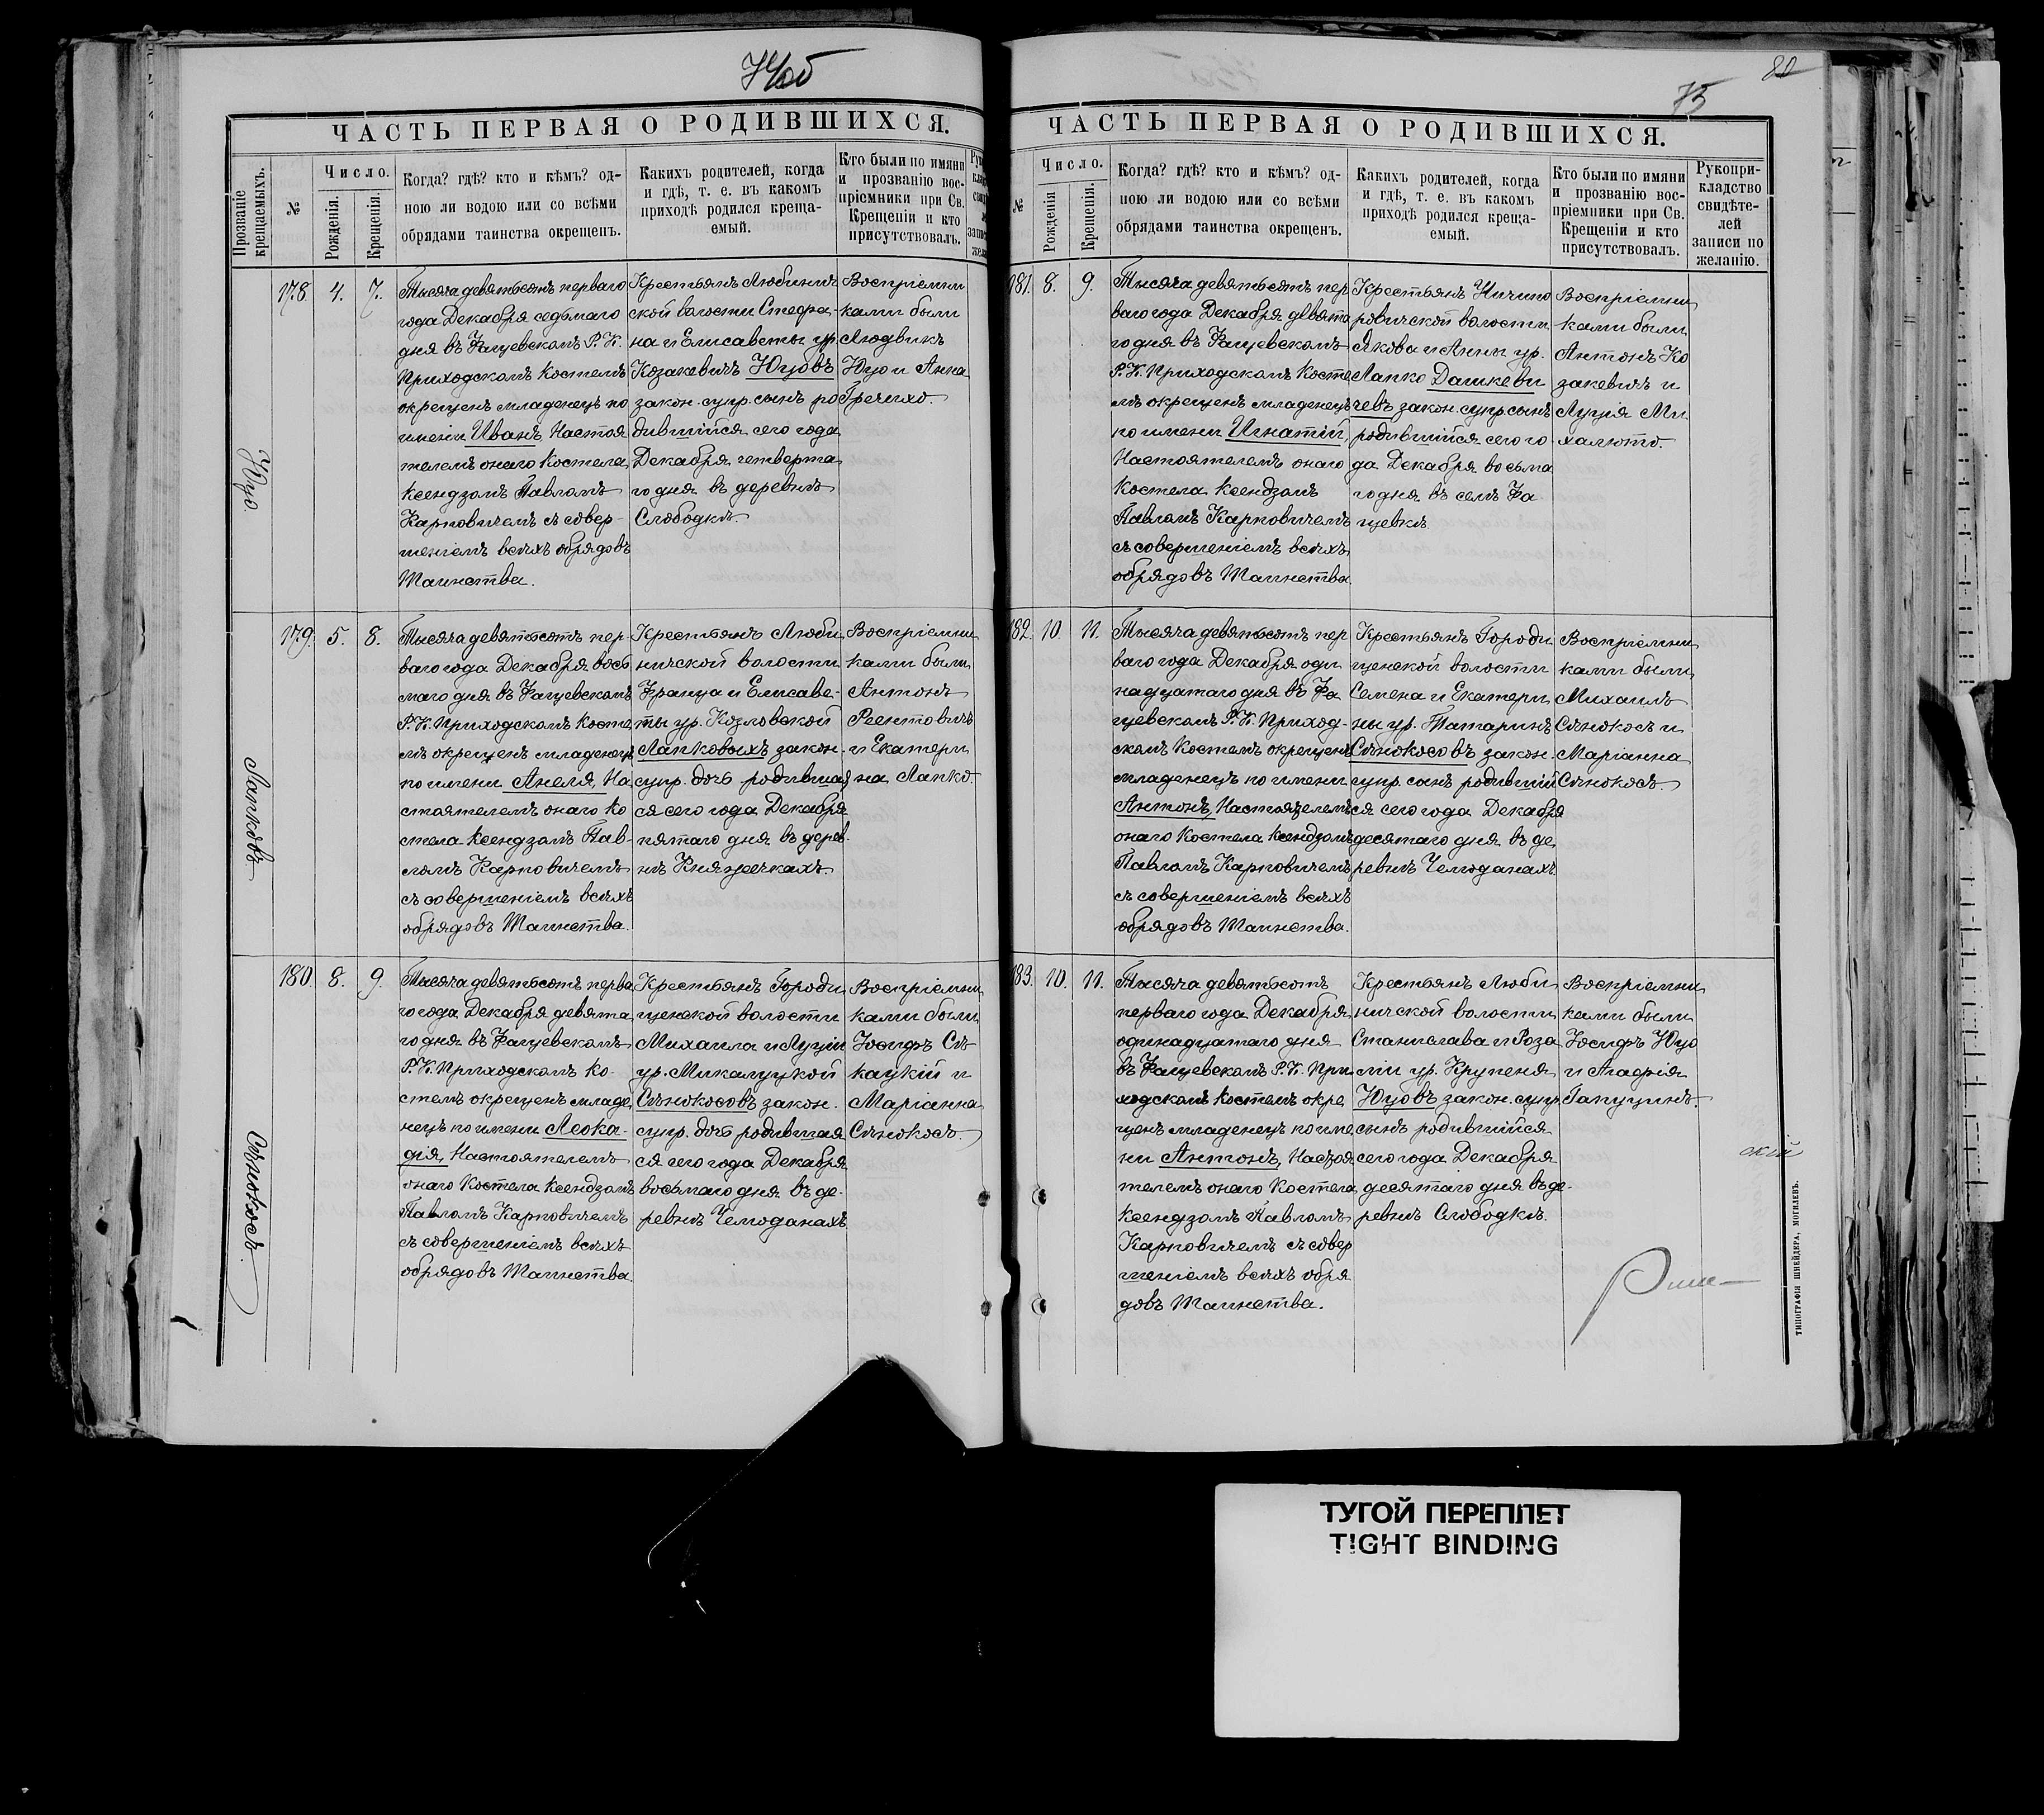 74об
ЧАСТЬ ПЕРВАЯ О РОДИВШИХСЯ.
Прозваніе крещаемыхъ.
№
Число.
Рожденія.
Крещенія.
Когда? гдѣ? кто и кѣмъ? од-
ною ли водою или со всѣми
обрядами таинства окрещенъ.
Какихъ родителей, когда
и гдѣ, т. е. въ какомъ
приходѣ родился креща-
емый.
Кто были по имяни
и прозванію вос-
пріемники при Св.
Крещеніи и кто
присутствовалъ.
Юцо.
178. 4. 7.
Тысяча девятьсотъ перваго
года Декабря седьмаго
дня въ Фащевскомъ Р. К.
Приходскомъ Костелѣ
окрещенъ младенецъ по
имени Иванъ, Настоя
телемъ онаго Костела
Ксендзомъ Павломъ
Карповичемъ съ совер-
шеніемъ всѣхъ обрядовъ
Таинства.
Крестьянъ Любинич
ской волости Стефа-
на и Елисаветы ур.
Козакевичъ Юцовъ
закон. супр. сынъ ро
дившійся сего года
Декабря четверта
го дня въ деревнѣ
Слободкѣ.
Воспріемни
ками были
Людвикъ
Юцо и Анна
Гречихо.
Лапковъ
179. 5. 8.
Тысяча девятьсотъ пер-
ваго года Декабря вось
маго дня въ Фащевскомъ
Р. К. Приходскомъ Косте
лѣ окрещенъ младенецъ
по имени Анеля, На
стоятелемъ онаго Ко
стела Ксендзомъ Пав-
ломъ Карповичемъ
съ совершеніемъ всѣхъ
обрядовъ Таинства.
Крестьянъ Люби
ничской волости
Франца и Елисаве-
ты ур. Козловской
Лапковыхъ закон.
супр. дочь родившая
ся сего года Декабря
пятаго дня въ дерев-
нѣ Княжечкахъ.
Воспріемни
ками были
Антонъ
Реентовичъ
и Екатери
на Лапко.
Сѣнокосъ.
180. 8. 9.
Тысяча девятьсотъ перва
го года Декабря девята
го дня въ Фащевскомъ
Р. К. Приходскомъ Ко-
стелѣ окрещенъ младе
нецъ по имени Леока-
дія, Настоятелемъ
онаго Костела Ксендзомъ
Павломъ Карповичемъ
съ совершеніемъ всѣхъ
обрядовъ Таинства.
Крестьянъ Городи
щенской волости
Михаила и Луціи
ур. Микалуцкой
Сѣнокосовъ закон.
супр. дочь родившая
ся сего года Декабря
восьмаго дня въ де-
ревнѣ Чемоданахъ
Воспріемни
ками были
Іосифъ Сѣ
кацкій и
Маріанна
Сѣнокосъ.
80
75
ЧАСТЬ ПЕРВАЯ О РОДИВШИХСЯ.
№
Число.
Рожденія
Крещенія.
Когда? гдѣ? кто и кѣмъ? од-
ною ли водою или со всѣми
обрядами таинства окрещенъ.
Какихъ родителей, когда
и гдѣ, т. е. въ какомъ
приходѣ родился креща-
емый.
Кто были по имяни
и прозванію вос-
пріемники при Св.
Крещеніи и кто
присутствовалъ.
Рукопри-
кладство
свидѣте-
лей
записи по
желанію.
181. 8. 9.
Тысяча девятьсотъ пер
ваго года Декабря девята
го дня въ Фащевскомъ
Р. К. Приходскомъ Косте
лѣ окрещенъ младенецъ
по имени Игнатій,
Настоятелемъ онаго
Костела Ксендзомъ
Павломъ Карповичемъ
съ совершеніемъ всѣхъ
обрядовъ Таинства
Крестьянъ Ничипо
ровичской волости
Якова и Анны ур.
Лапко Дашкеви
чевъ закон. супр. сынъ
родившійся сего го
да Декабря восьма
го дня въ селѣ Фа
щевкѣ
Воспріемни
ками были
Антонъ Ко
закевичъ и
Луція Ми
халюто.
182. 10. 11.
Тысяча девятьсотъ пер
ваго года Декабря оди
надцатаго дня въ Фа
щевскомъ Р. К. Приход-
скомъ Костелѣ окрещенъ
младенецъ по имени
Антонъ, Настоятелемъ
онаго Костела Ксендзомъ
Павломъ Карповичемъ
съ совершеніемъ всѣхъ
обрядовъ Таинства.
Крестьянъ Городи
щенской волости
Семена и Екатери
ны ур. Татаринъ
Сѣнокосовъ закон.
супр. сынъ родившій
ся сего года Декабря
десятаго дня въ де
ревнѣ Чемоданахъ
Воспріемни
ками были
Михаилъ
Сѣнокосъ и
Маріанна
Сѣнокосъ.
183. 10. 11.
Тысяча девятьсотъ
перваго года Декабря
одинадцатаго дня
въ Фащевскомъ Р. К. При
ходскомъ Костелѣ окре
щенъ младенецъ по име
ни Антонъ, Настоя
телемъ онаго Костела
Ксендзомъ Павломъ
Карповичемъ съ совер
шеніемъ всѣхъ обря
довъ Таинства.
Крестьянъ Люби
ничской волости
Станислава и Роза
ліи ур. Крупеня
Юцовъ закон. супр
сынъ родившійся
сего года Декабря
десятаго дня въ де-
ревнѣ Слободкѣ.
Воспріемни
ками были
Іосифъ Юцо
и Агафія
Гапуцинъ.
ТИПОГРАФІЯ ШНЕЙДЕРА, МОГИЛЕВЪ.
ТУГОЙ ПЕРЕПЛЕТ
TIGHT BINDING